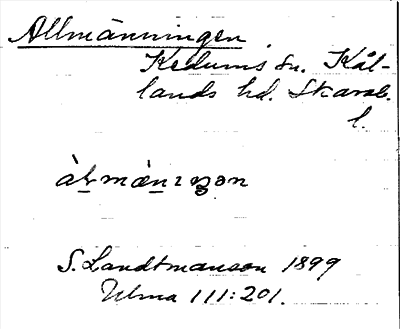 Allmänningen
Kedums sn. Kål-
lands hd. Skarab.
l.
S. Landtmanson 1899
Ulma 111:201.